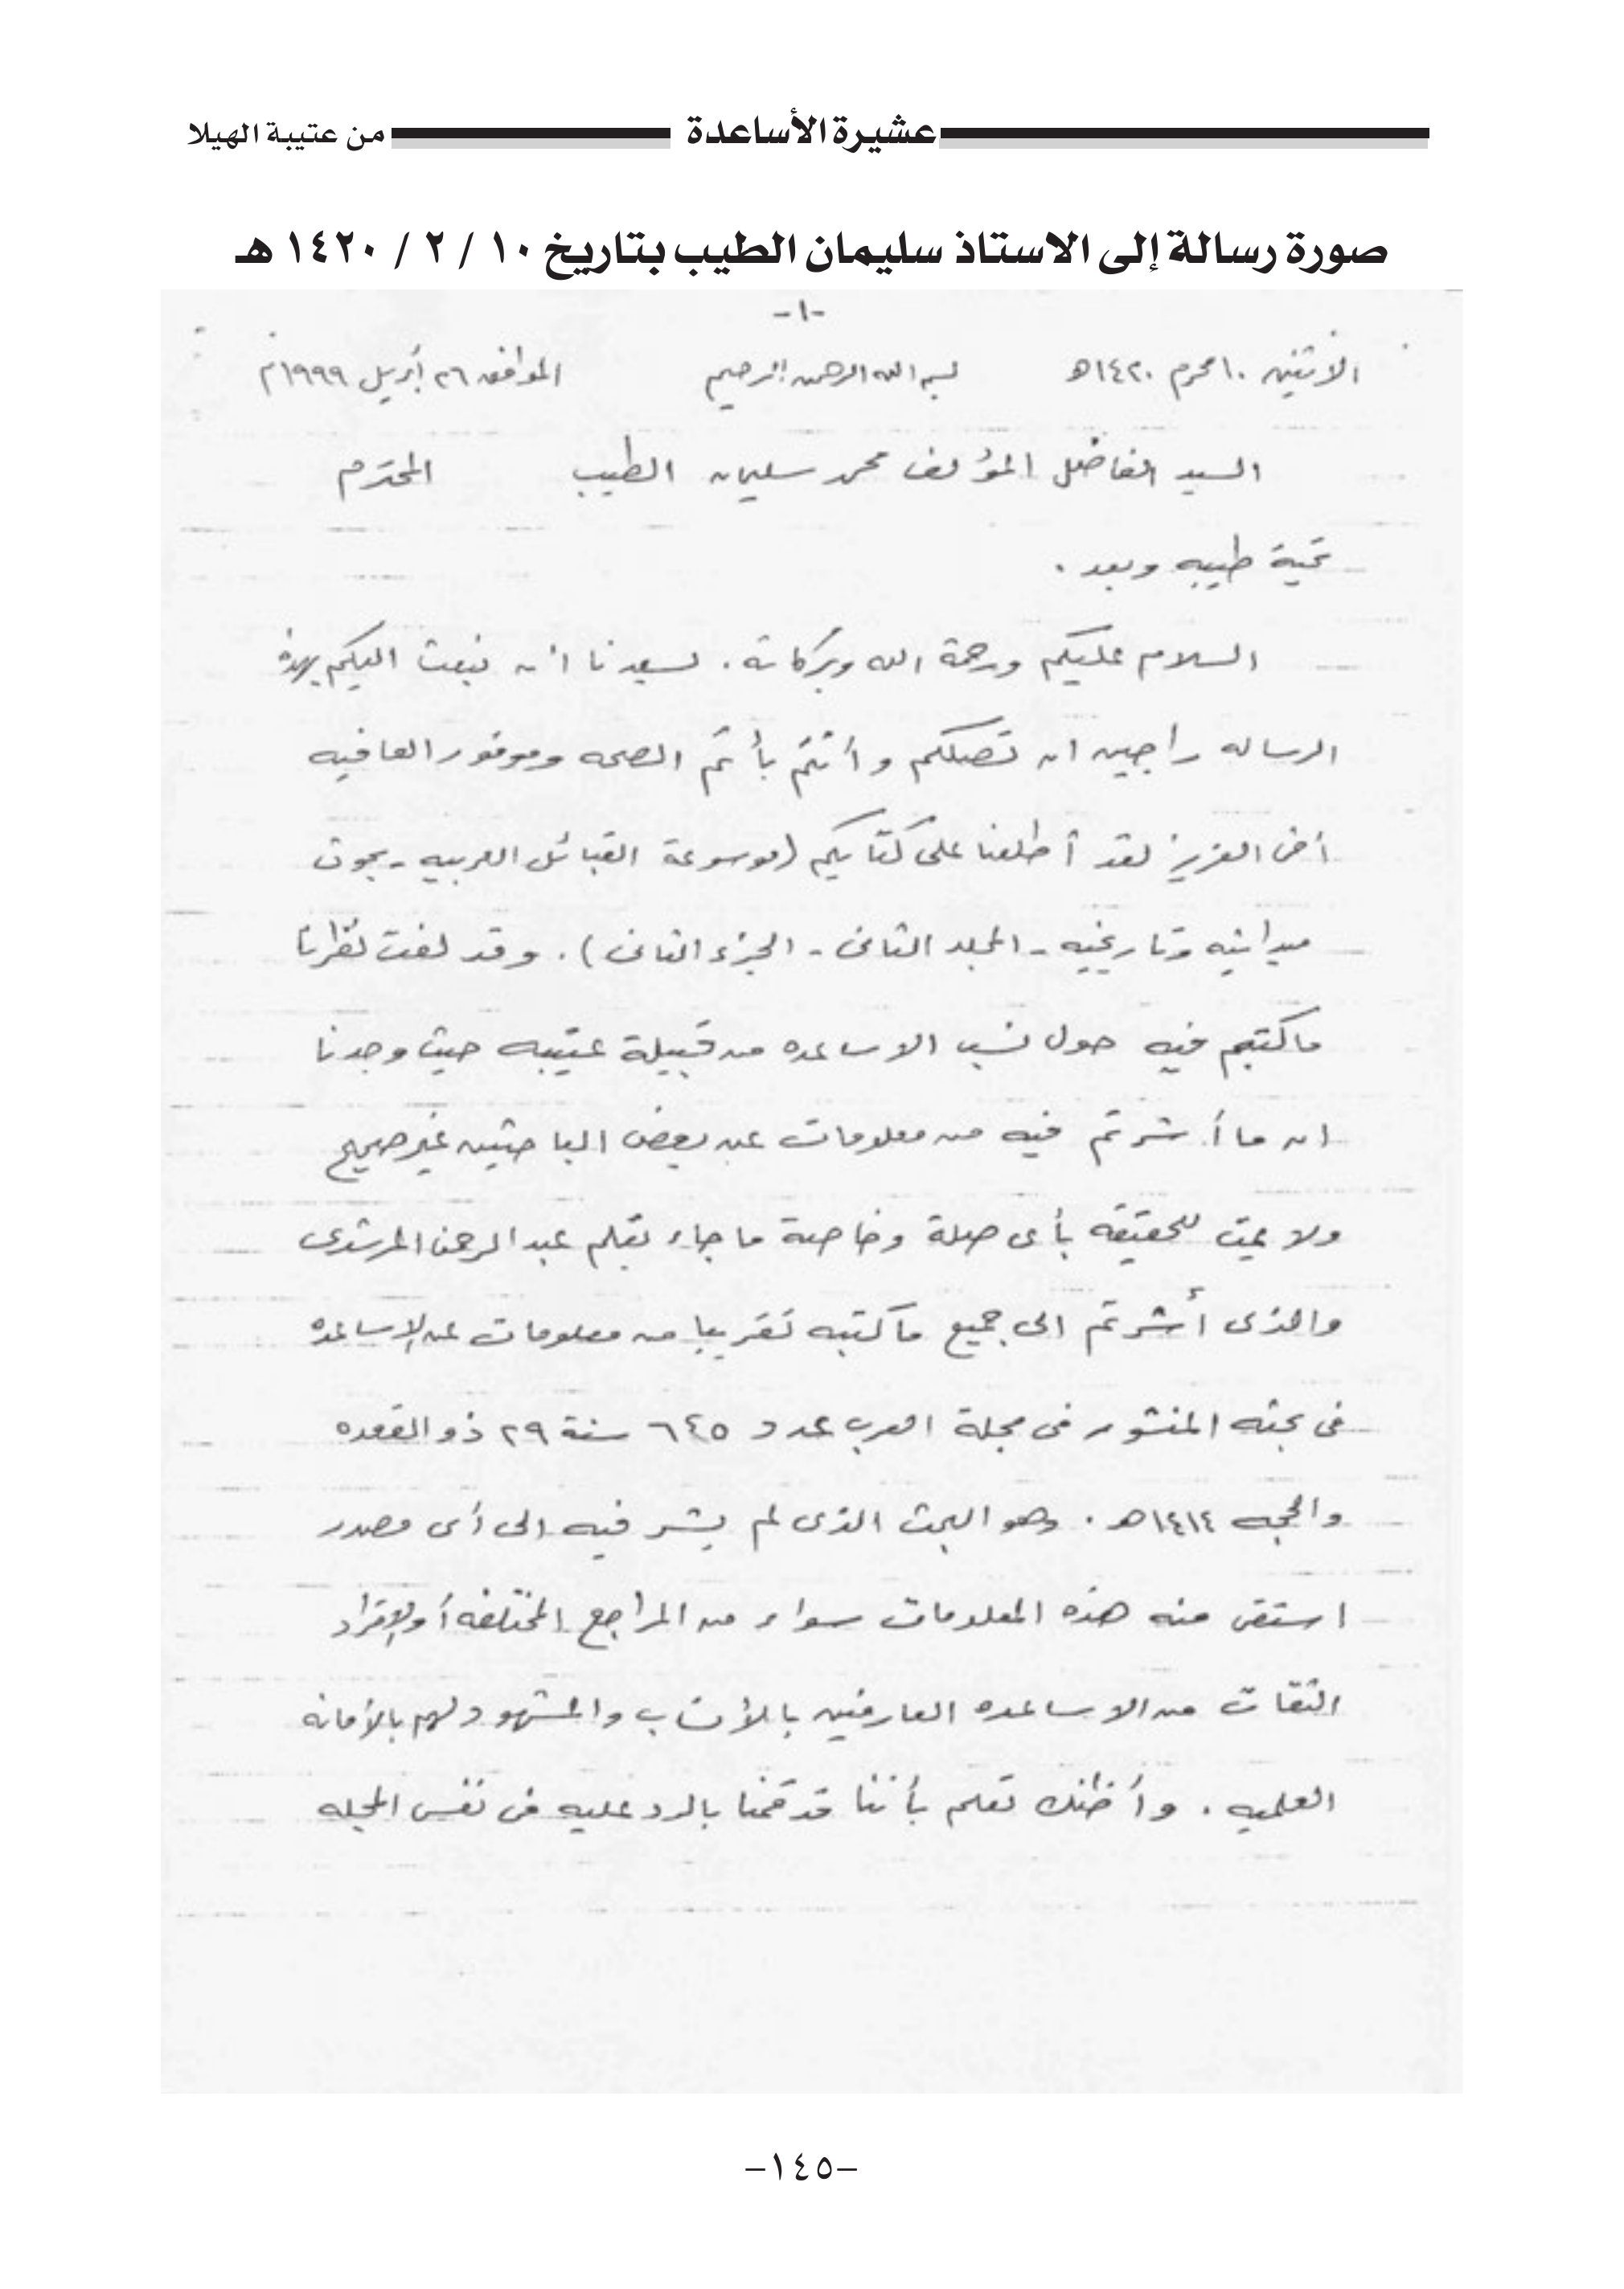 عشيرة الأساعدة من عتيبة الهيلا
صورة رسالة إلى الاستاذ سليمان الطيب بتاريخ ١٠ / ٢ / ١٤٢٠ هـ
-١-
الاثنين ١٠ محرم ١٤٢٠هـ بسم الله الرحمن الرحيم الموافق ٢٦ أبريل ١٩٩٩م
السيد الفاضل المؤلف محمد سليمان الطيب المحترم
تحية طيبه وبعد .
السلام عليكم ورحمة الله وبركاته . يسعدنا ان نبعث اليكم بهذه
الرساله راجين ان تصلكم وأنتم بأتم الصحه وموفور العافيه
أخى العزيز لقد أطلعنا على كتابكم (موسوعة القبائل العربيه - بحوث
ميدانيه وتاريخيه - المجلد الثانى - الجزء الثانى ) . وقد لفت نظرنا
ماكتبتم فيه حول نسب الاساعده من قبيلة عتيبه حيث وجدنا
ان ما أشرتم فيه من معلومات عن بعض الباحثين غير صحيح
ولا يمت للحقيقه بأى صلة وخاصة ما جاء بقلم عبد الرحمن المرشدى
والذى أشرتم الى جميع ماكتبه تقريبا من معلومات عن الاساعده
فى بحثه المنشور فى مجلة العرب عدد ٦٤٥ سنة ٢٩ ذو القعده
والحجه ١٤١٤هـ . وهو البحث الذى لم يشر فيه الى أى مصدر
استقى منه هذه المعلومات سواء من المراجع المختلفه أو الافراد
الثقات من الاساعده العارفين بالأنساب والمشهود لهم بالأمانه
العلميه . وأظنك تعلم بأننا قد قمنا بالرد عليه فى نفس المجله
-١٤٥-